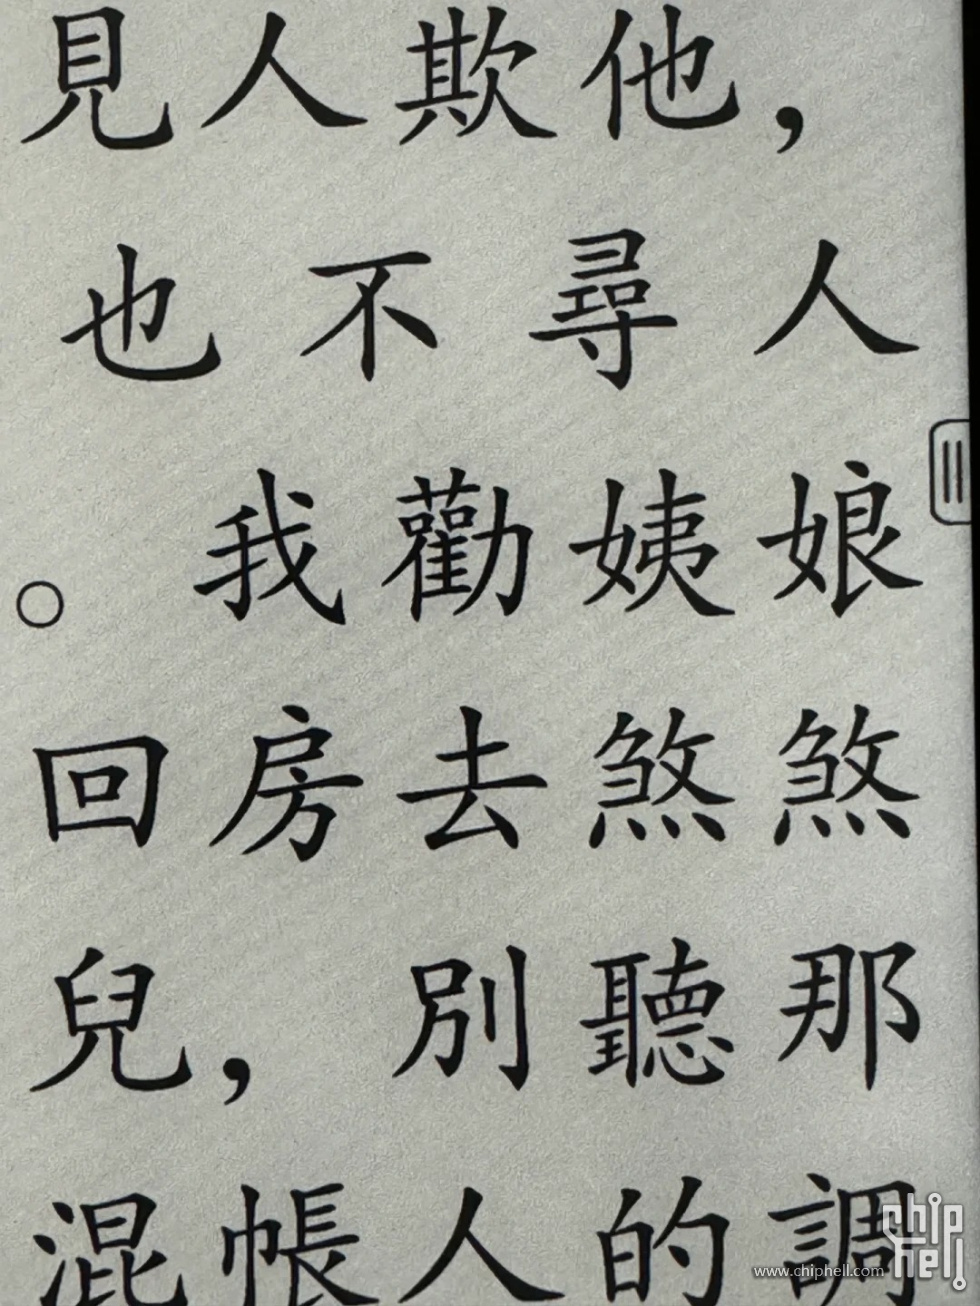 見人欺他，
也不尋人
。我勸姨娘
回房去煞煞
兒，別聽那
混帳人的調
chip hell
www.chiphell.com